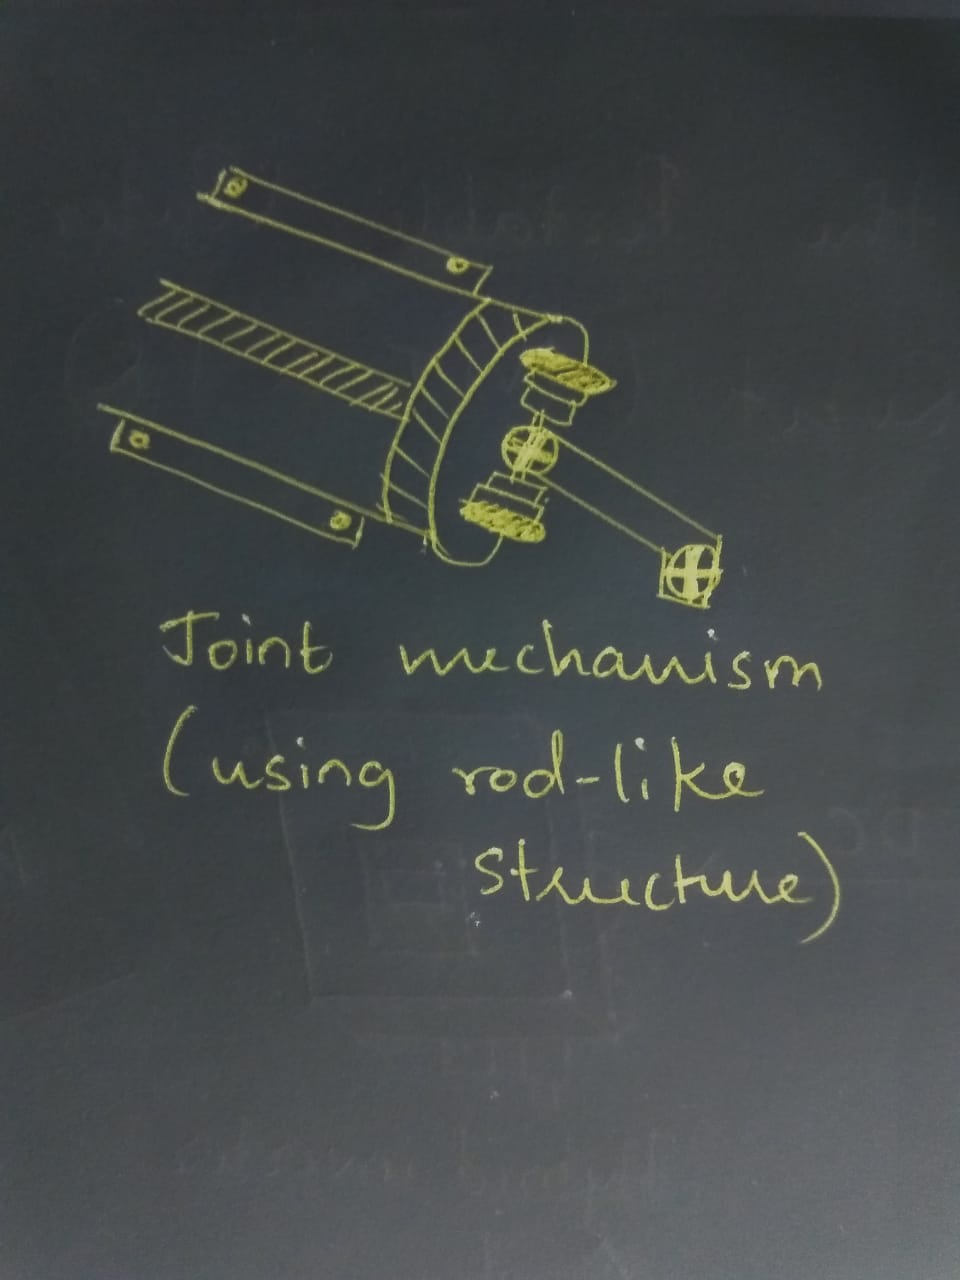 Joint mechanism
(using rod-like
structure)